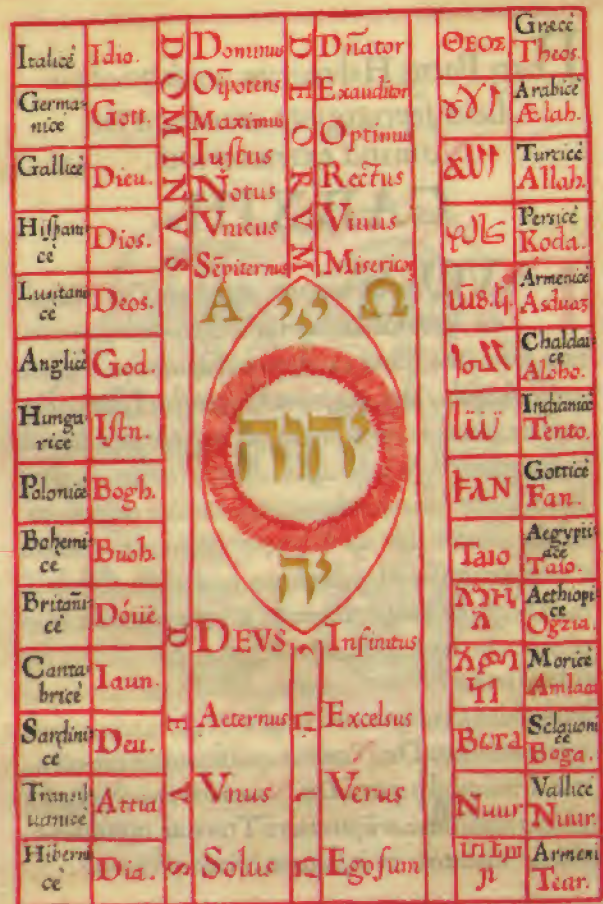 Italicè Idio.
Germanicè Gott.
Gallicè Dieu.
Hispanicè Dios.
Lusitanicè Deos.
Anglicè God.
Hungaricè Istn.
Polonicè Bogh.
Bohemicè Buoh.
Britan̄icè Dóuè.
Cantabricè Iaun.
Sardinicè Deu.
Transiluanicè Attia
Hibernicè Dia.
DOMINVS
Dominus
Oīpotens
Maximus
Iuſtus
Notus
Vnicus
Sēpiternus
DEORVM
Dn̄ator
Exauditor
Optimus
Rectus
Viuus
Misericors
Α ייי Ω
יהוה
יה
DEVS
DEVS Infinitus
Aeternus Excelsus
Vnus Verus
Solus Egoſum
ΘΕΟΣ Græcè Theos.
Arabicè Ælah.
Turcicè Allah.
Persicè Koda.
Armenicè Asduaz
Chaldaicè Aloho.
Indianicè Tento.
FAN Gotticè Fan.
Taιο Aegyptiacè Taio.
Aethiopicè Ogzia.
Moricè Amlaa
Bωra Sclauonicè Boga.
Nuur Vallicè Nuur.
Armeni Tear.